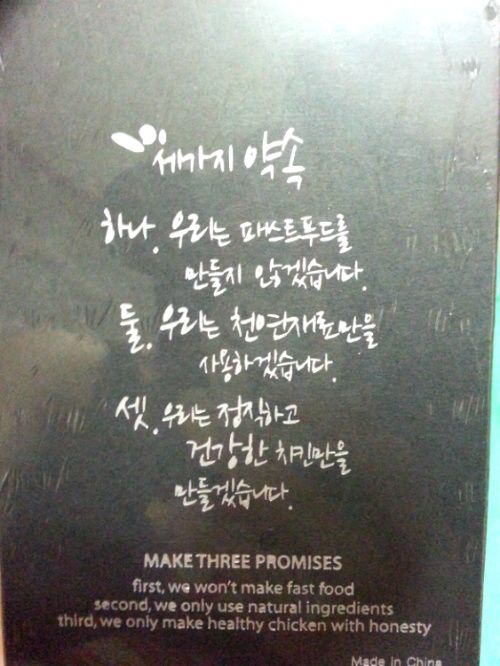 세가지 약속
하나. 우리는 패스트푸드를
만들지 않겠습니다.
둘. 우리는 천연재료만을
사용하겠습니다.
셋. 우리는 정직하고
건강한 치킨만을
만들겠습니다.
MAKE THREE PROMISES
first, we won't make fast food
second, we only use natural ingredients
third, we only make healthy chicken with honesty
Made in China